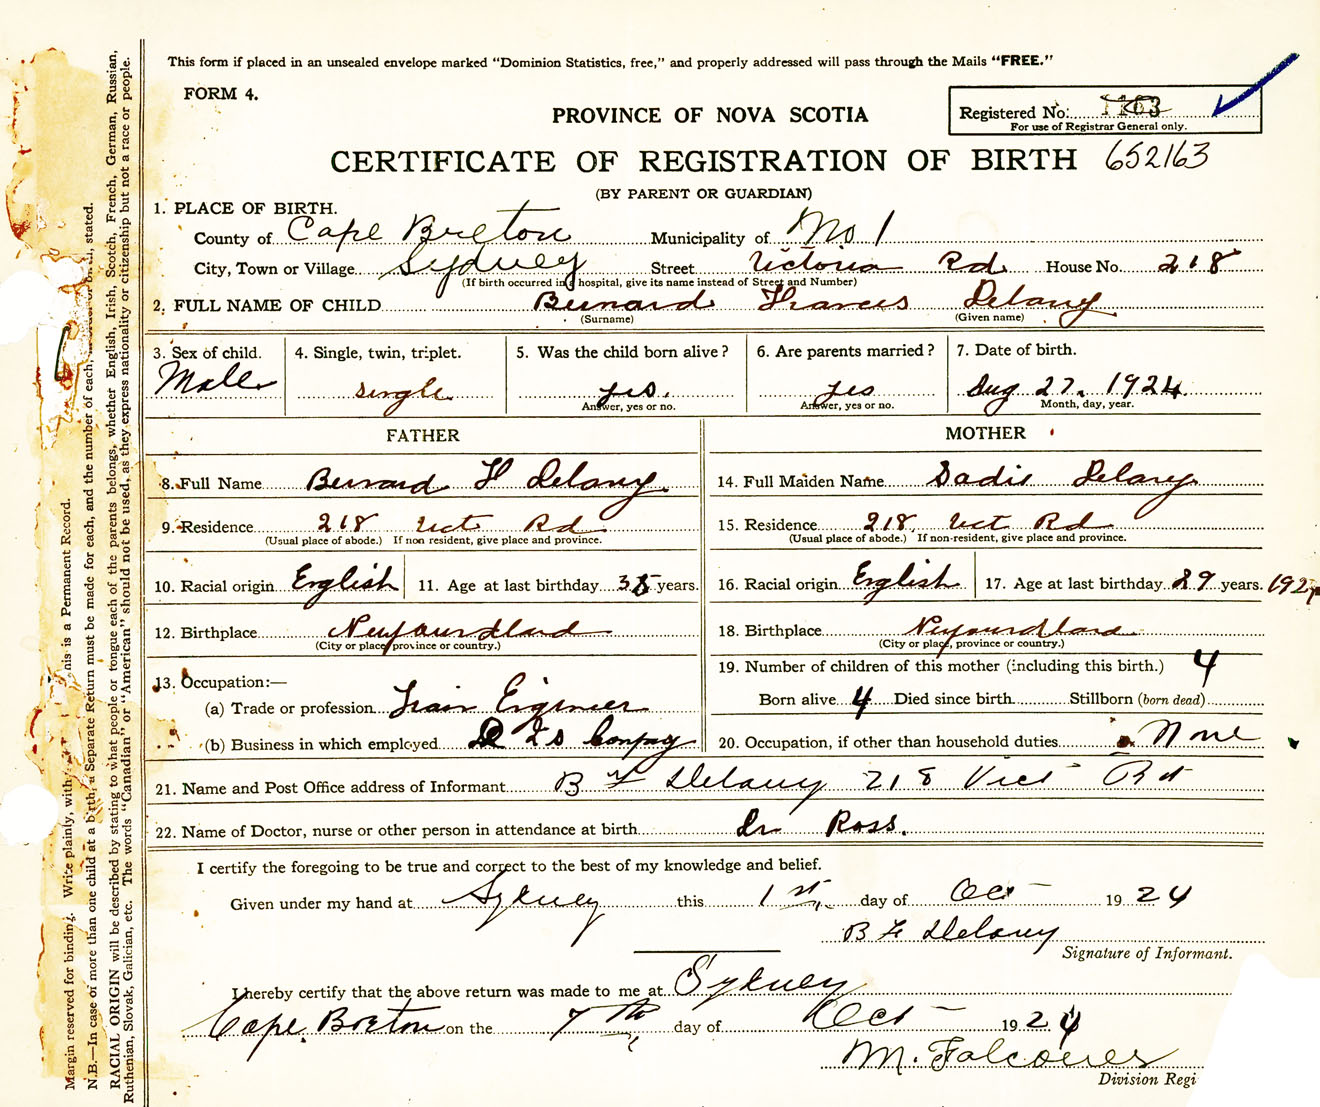 This form if placed in an unsealed envelope marked "Dominion Statistics, free," and properly addressed will pass through the Mails "FREE."
FORM 4.
PROVINCE OF NOVA SCOTIA
Registered No: 1163
For use of Registrar General only.
CERTIFICATE OF REGISTRATION OF BIRTH 652163
(BY PARENT OR GUARDIAN)
1. PLACE OF BIRTH.
County of Cape Breton Municipality of No 1
City, Town or Village Sydney Street Victoria Rd House No. 218
(If birth occurred in a hospital, give its name instead of Street and Number)
2. FULL NAME OF CHILD Bernard Frances Delany
(Surname) (Given name)
3. Sex of child. 4. Single, twin, triplet. 5. Was the child born alive? 6. Are parents married? 7. Date of birth.
Male single yes. yes Aug 27. 1924
Answer, yes or no. Answer, yes or no. Month, day, year.
FATHER
8. Full Name Bernard F Delany
9. Residence 218 Vict Rd
(Usual place of abode.) If non resident, give place and province.
10. Racial origin English 11. Age at last birthday 35 years.
12. Birthplace Newfoundland
(City or place, province or country.)
13. Occupation:—
(a) Trade or profession Train Engineer
(b) Business in which employed D I S Company
MOTHER
14. Full Maiden Name Sadie Delany
15. Residence 218 Vict Rd
(Usual place of abode.) If non-resident, give place and province.
16. Racial origin English 17. Age at last birthday 29 years.
18. Birthplace Newfoundland
(City or place, province or country.)
19. Number of children of this mother (including this birth.) 4
Born alive 4 Died since birth Stillborn (born dead)
20. Occupation, if other than household duties None
21. Name and Post Office address of Informant B F Delany 218 Vict Rd
22. Name of Doctor, nurse or other person in attendance at birth Dr Ross.
I certify the foregoing to be true and correct to the best of my knowledge and belief.
Given under my hand at Sydney this 1st. day of Oct 1924
B F Delany
Signature of Informant.
I hereby certify that the above return was made to me at Sydney
Cape Breton on the 7th day of Oct 1924
M. Falconer
Division Regi
Margin reserved for binding. Write plainly, with This is a Permanent Record.
N.B.—In case of more than one child at a birth, a Separate Return must be made for each, and the number of each, stated.
RACIAL ORIGIN will be described by stating to what people or tongue each of the parents belongs, whether English, Irish, Scotch, French, German, Russian,
Ruthenian, Slovak, Galician, etc. The words "Canadian" or "American" should not be used, as they express nationality or citizenship but not a race or people.